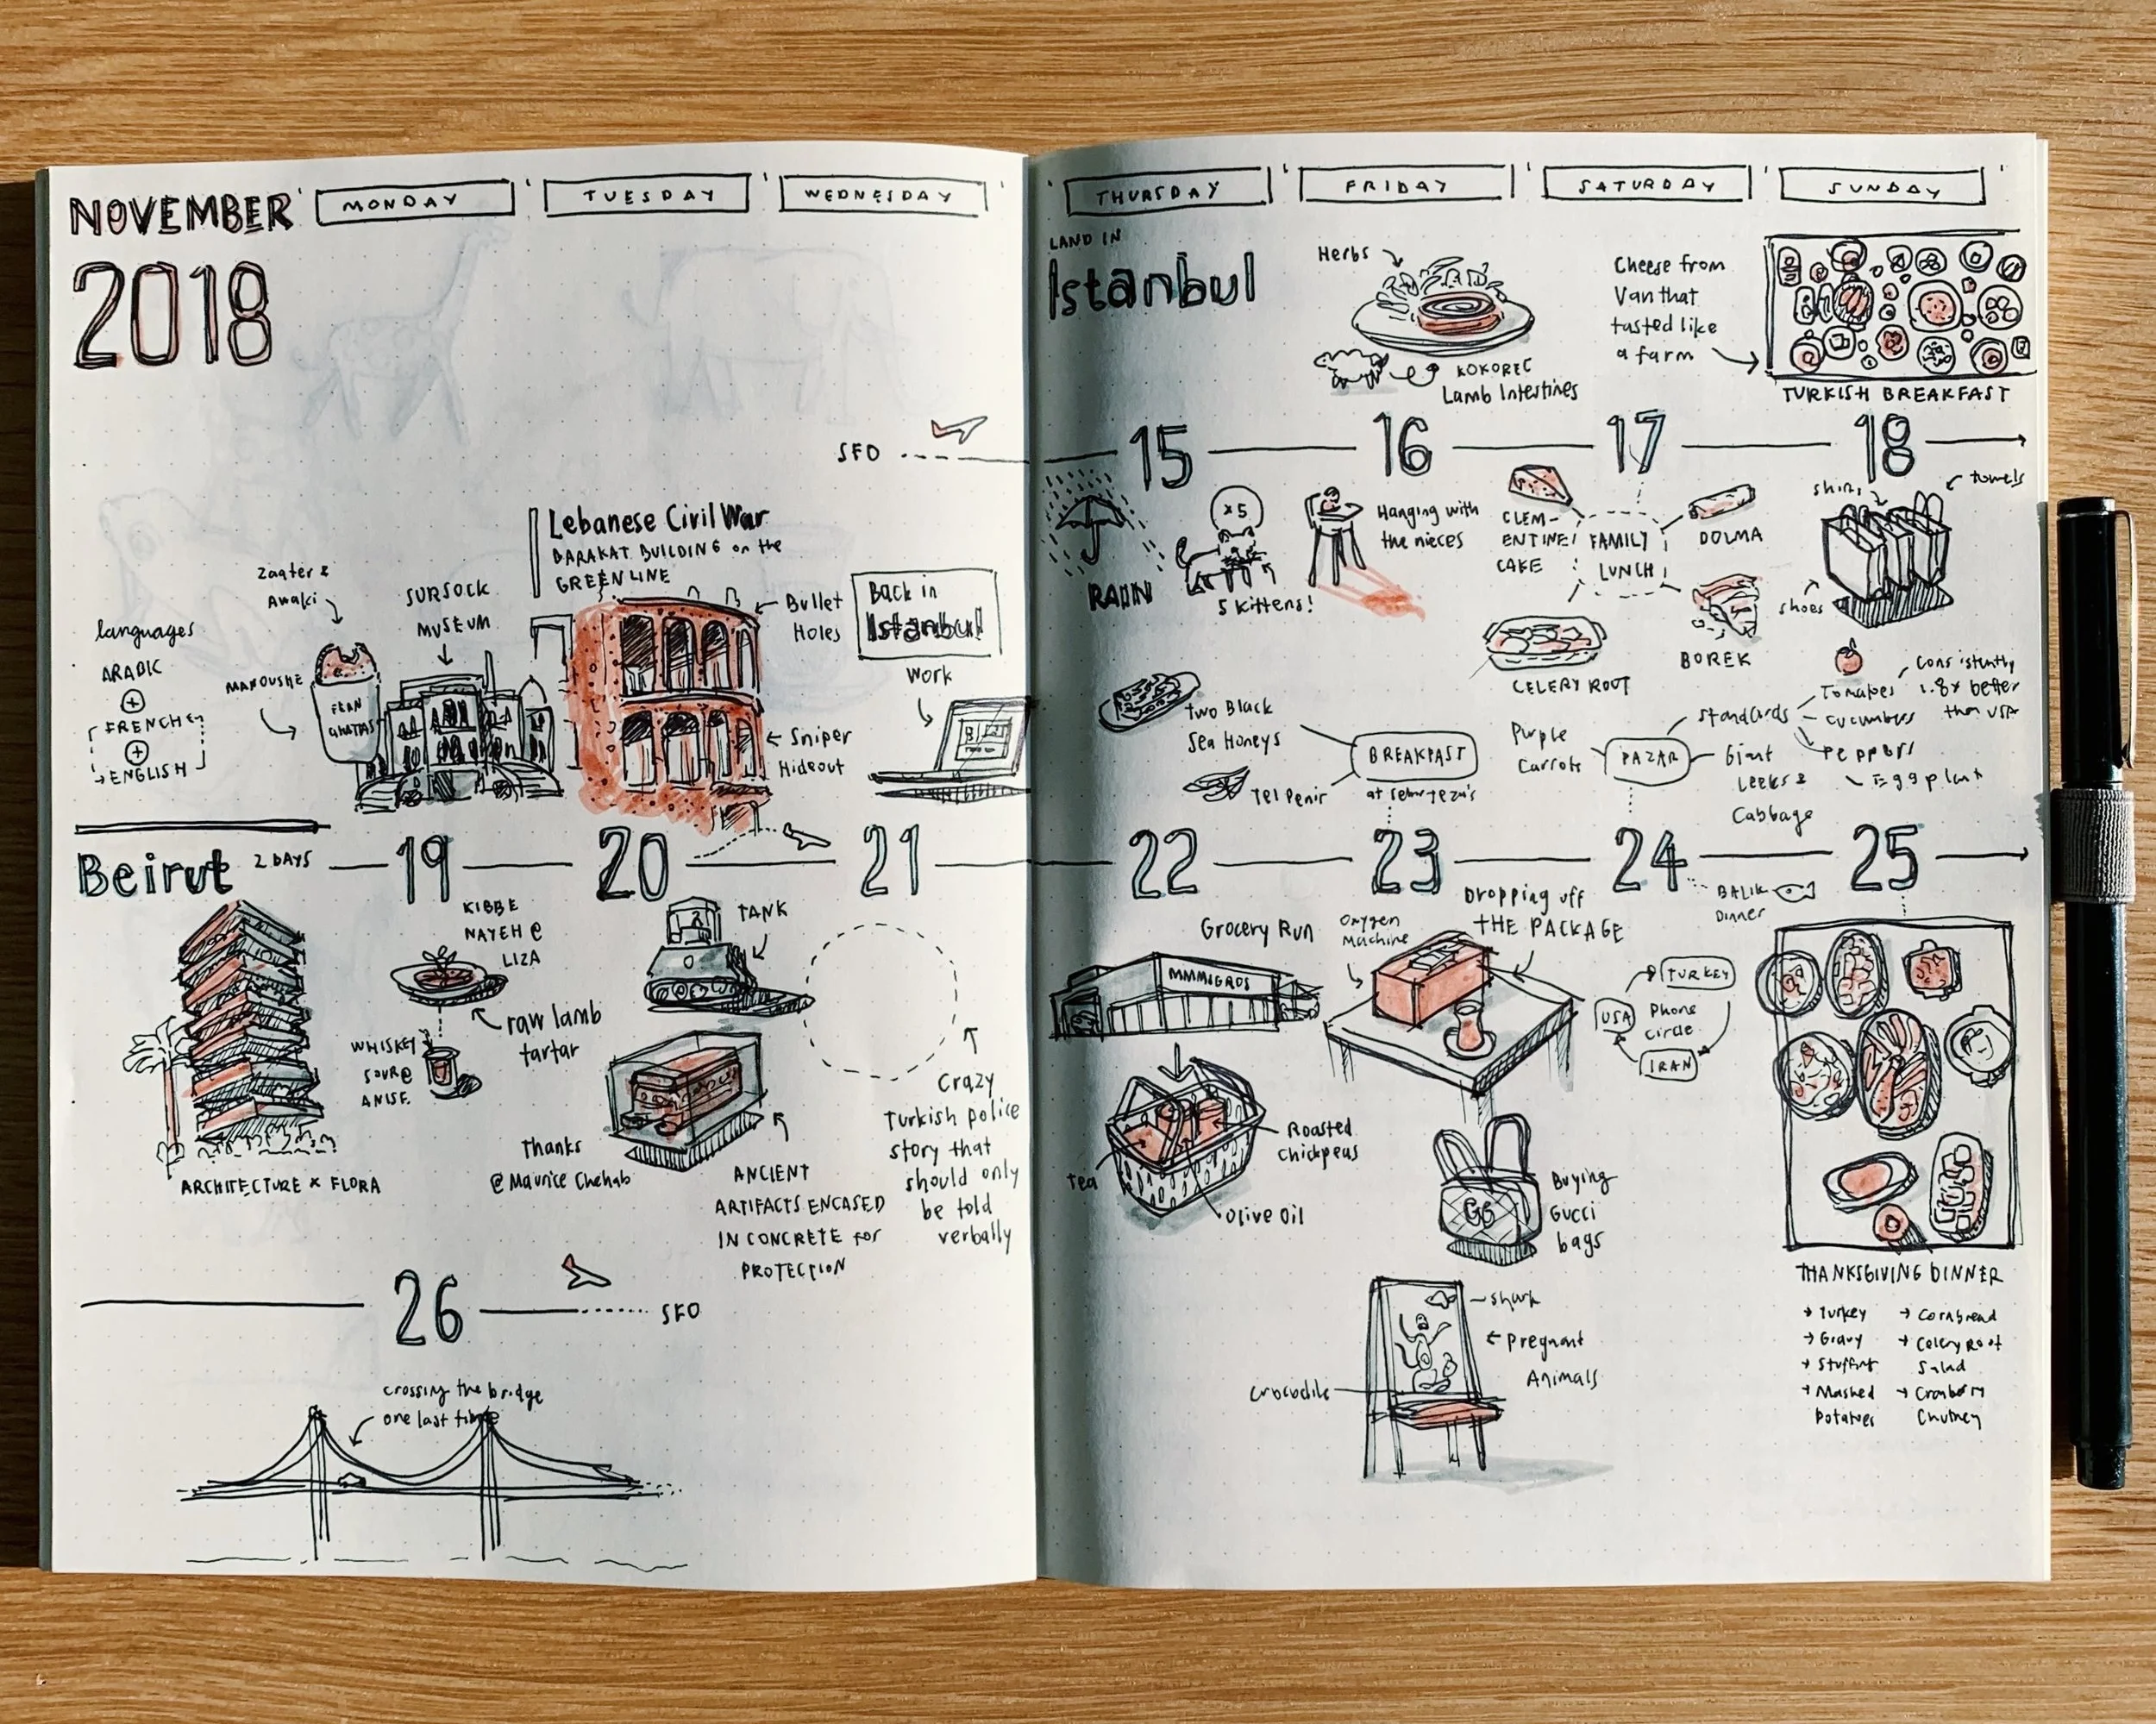 NOVEMBER
2018
MONDAY
TUESDAY
WEDNESDAY
THURSDAY
FRIDAY
SATURDAY
SUNDAY
LAND IN
Istanbul
Herbs
KOKOREC
Lamb Intestines
Cheese from
Van that
tasted like
a farm
TURKISH BREAKFAST
SFO
15
16
17
18
RAIN
x5
5 kittens!
Hanging with
the nieces
CLEM-
ENTINE
CAKE
FAMILY
LUNCH
DOLMA
CELERY ROOT
BOREK
towels
shoes
languages
ARABIC
+
FRENCH
+
ENGLISH
Zaater &
Awaki
MANOUSHE
SURSOCK
MUSEUM
Lebanese Civil War
BARAKAT BUILDING on the
GREEN LINE
Bullet
Holes
Sniper
Hideout
Back in
Istanbul
Work
Two Black
Sea Honeys
Tel Penir
BREAKFAST
Purple
Carrots
PAZAR
Standards
Tomatoes
Cucumbers
Peppers
Eggplant
Consistently
1.8x better
than USA
Giant
Leeks &
Cabbage
Beirut
2 DAYS
19
20
21
22
23
24
25
ARCHITECTURE x FLORA
KIBBE
NAYEH @
LIZA
raw lamb
tartar
WHISKEY
SOUR @
ANISE
TANK
Thanks
@ Maurice Chehab
ANCIENT
ARTIFACTS ENCASED
IN CONCRETE for
PROTECTION
Crazy
Turkish police
story that
should only
be told
verbally
Grocery Run
MMMIGROS
Tea
Roasted
Chickpeas
Olive Oil
Oxygen
Machine
Dropping off
THE PACKAGE
BALIK
Dinner
TURKEY
USA
Phone
circle
IRAN
Buying
Gucci
bags
GG
shark
Pregnant
Animals
Crocodile
THANKSGIVING DINNER
Turkey
Gravy
Stuffing
Mashed
Potatoes
Cornbread
Celery Root
Salad
Cranberry
Chutney
26
SFO
crossing the bridge
one last time